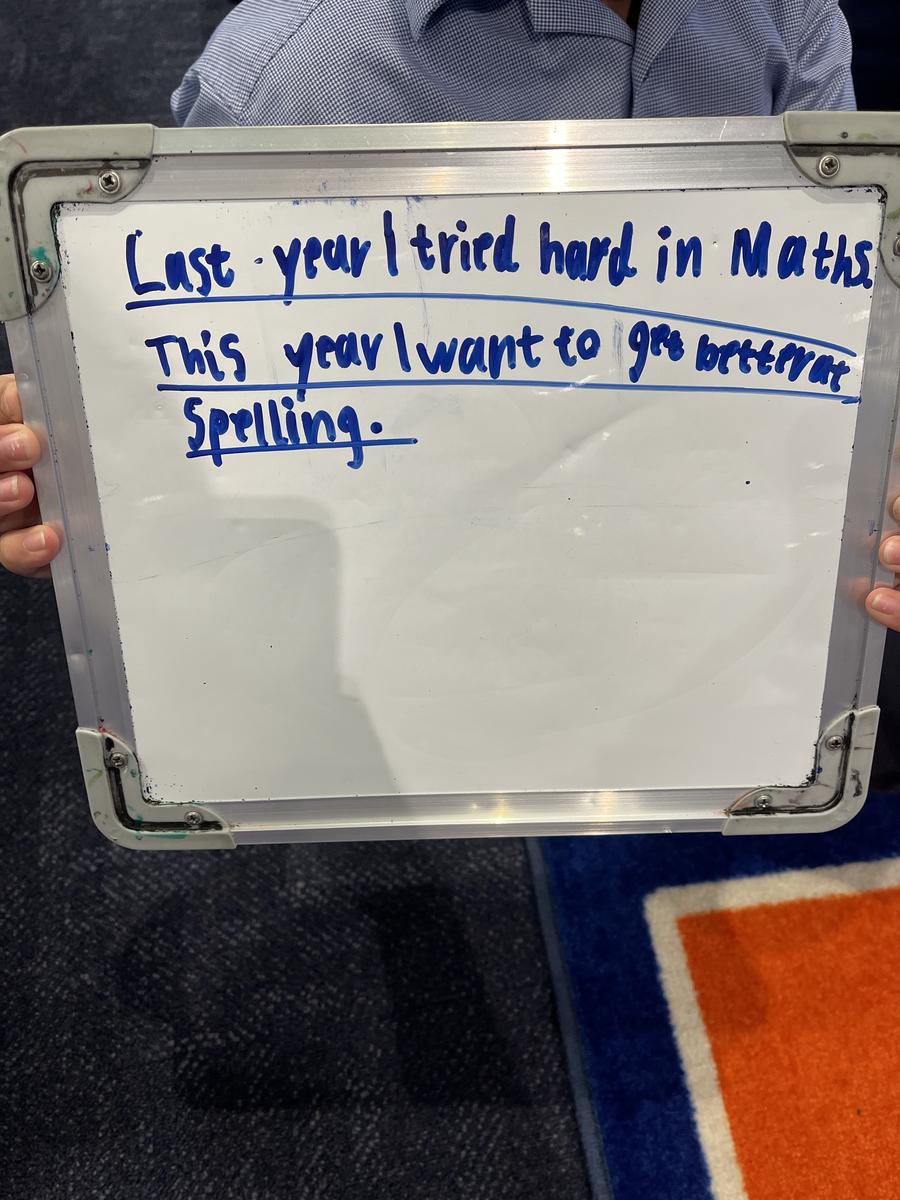 Last year I tried hard in Maths.
This year I want to get better at
Spelling.